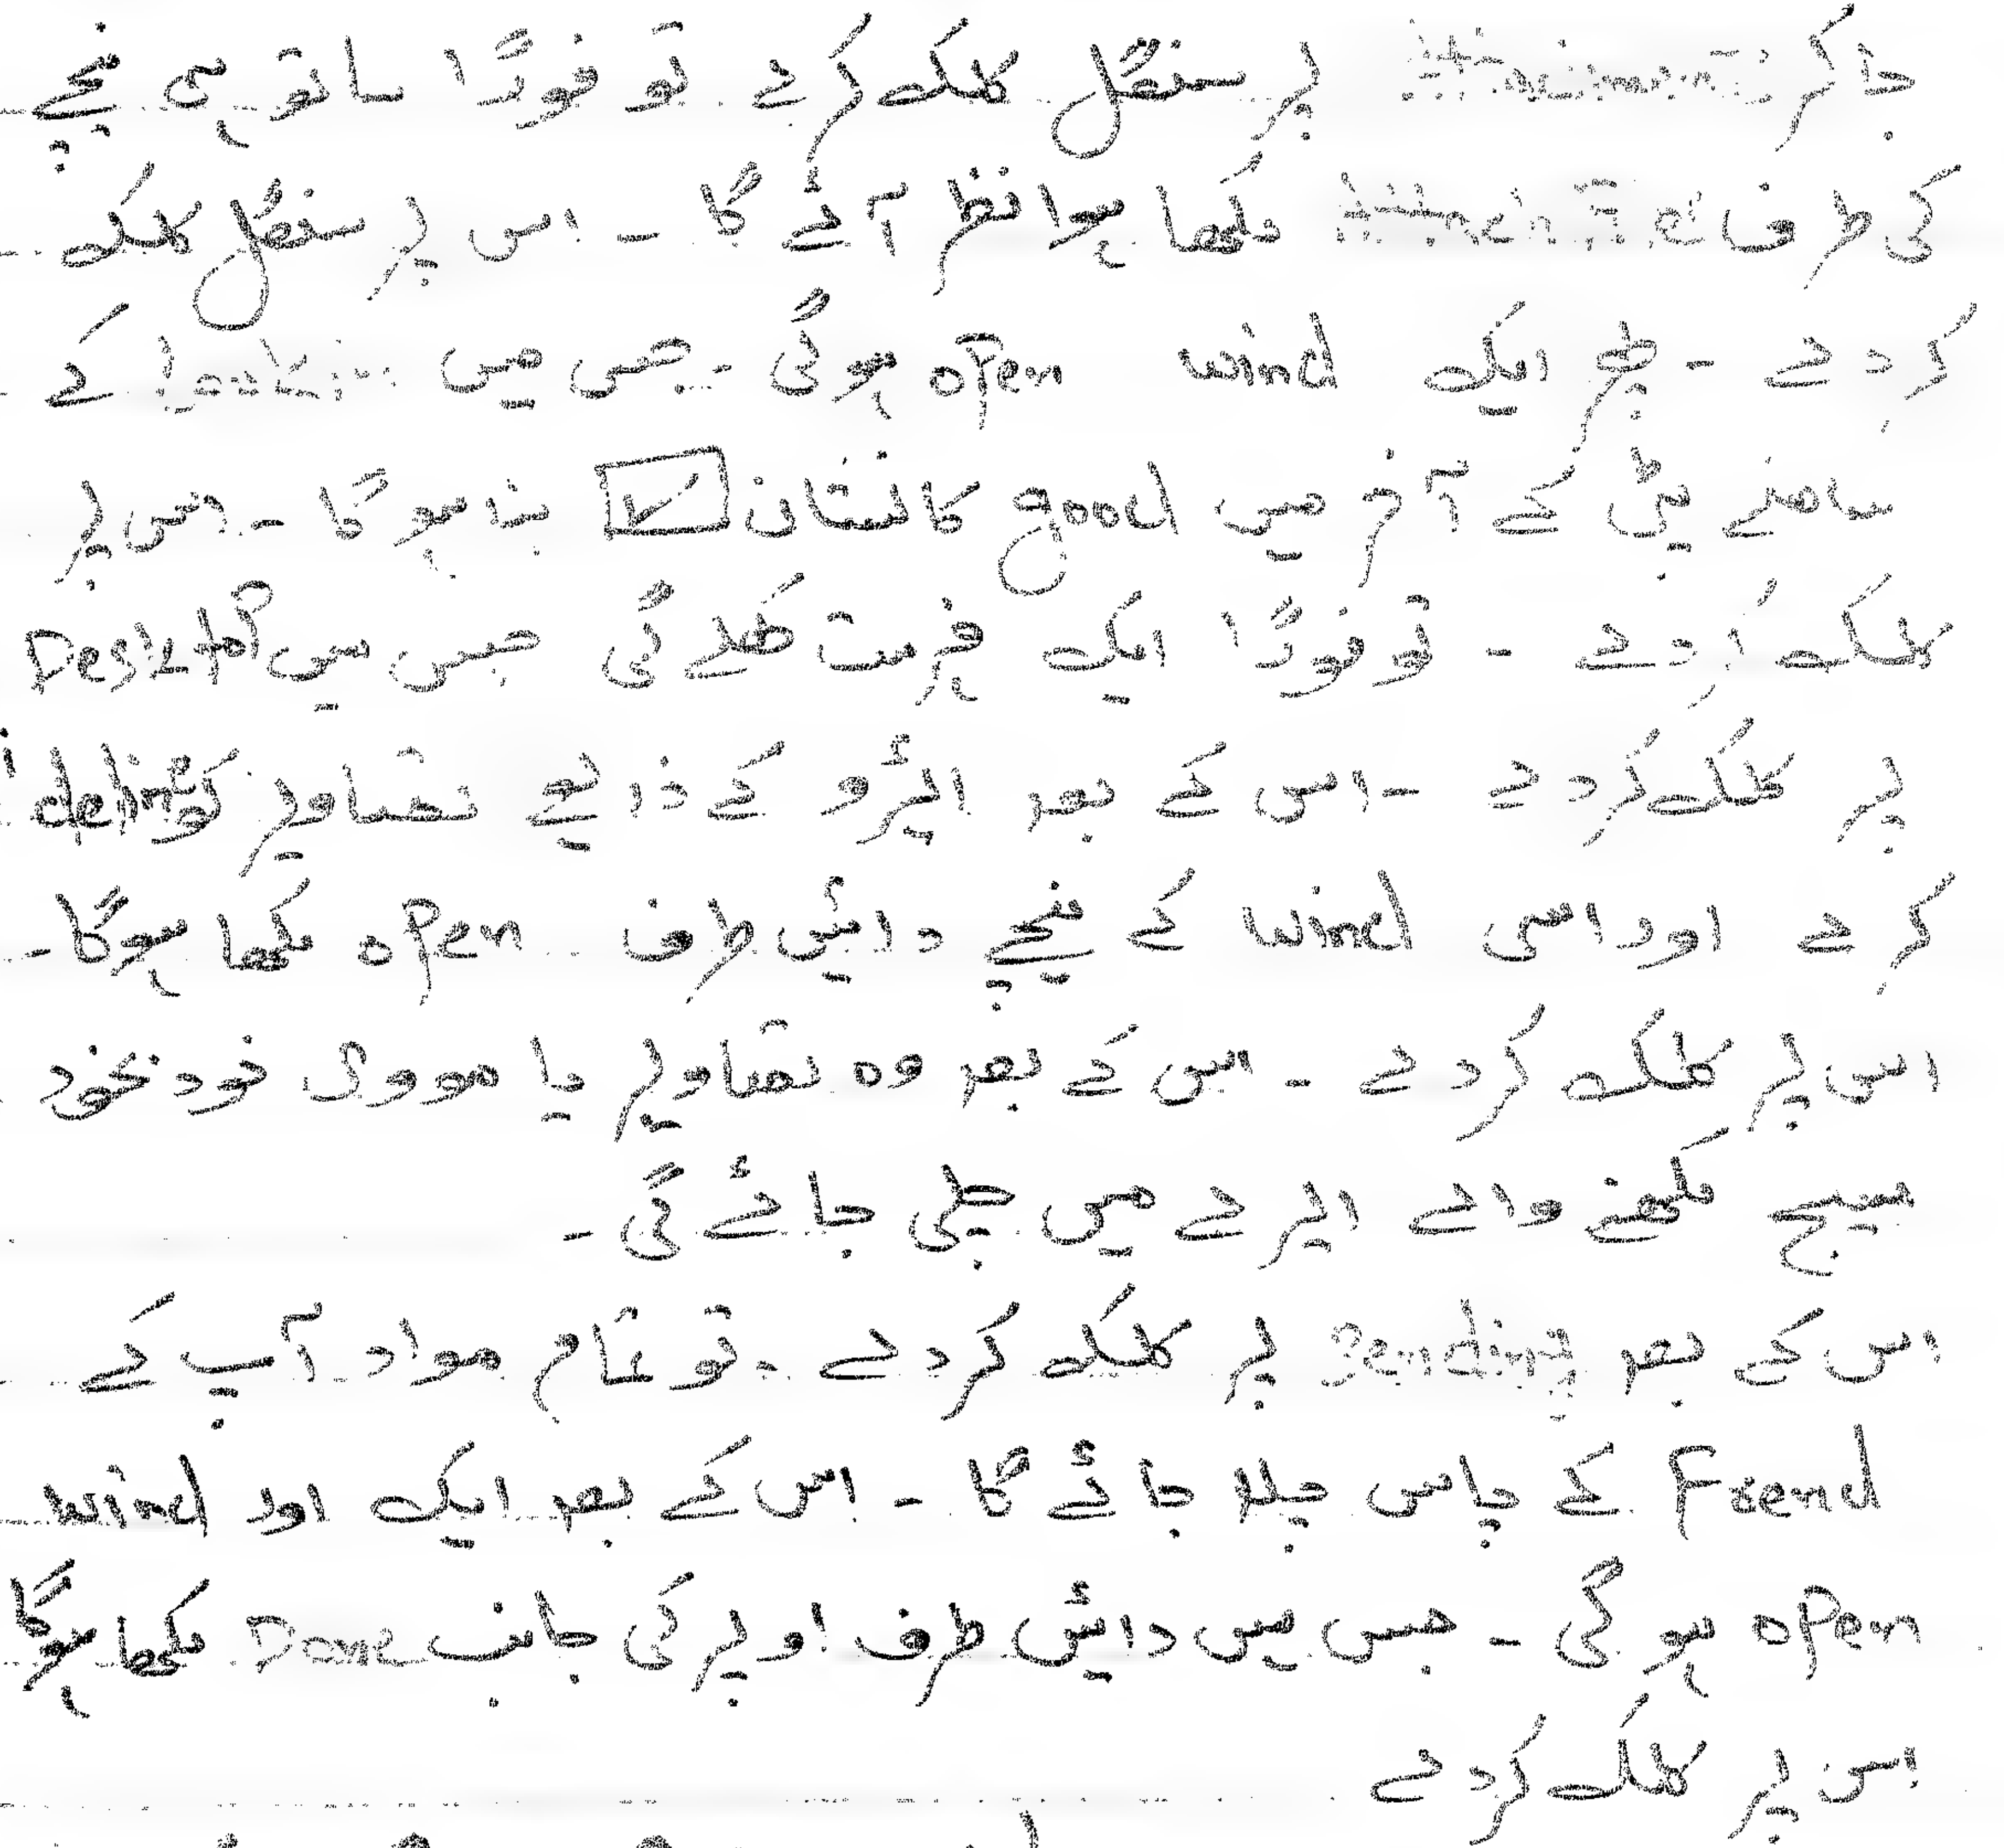 جاکر پر سنگل کلک کرے تو فوراً ساتھ ہی نیچے
کی طرف لکھا ہوا نظر آئے گا ۔ اس پر سنگل کلک
کر دے ۔ پھر ایک wind open ہو گی ۔ جس میں کے
سامنے پٹی کے آخر میں good کا نشان بنا ہو گا ۔ اس پر
کلک کر دے ۔ تو فوراً ایک فہرست کھلے گی جس میں Desktop
پر کلک کر دے ۔ اس کے بعد ایرو کے ذریعے تصاویر کو
کرے اور اسی wind کے نیچے دائیں طرف open لکھا ہوگا ۔
اس پر کلک کر دے ۔ اس کے بعد وہ تصاویر یا مووی خود بخود
میسج لکھنے والے ایریے میں چلی جائے گی ۔
اس کے بعد Sending پر کلک کر دے ۔ تو تمام مواد آپ کے
Friend کے پاس چلا جائے گا ۔ اس کے بعد ایک اور wind
open ہو گی ۔ جس میں دائیں طرف اوپر کی جانب Done لکھا ہوگا
اس پر کلک کر دے